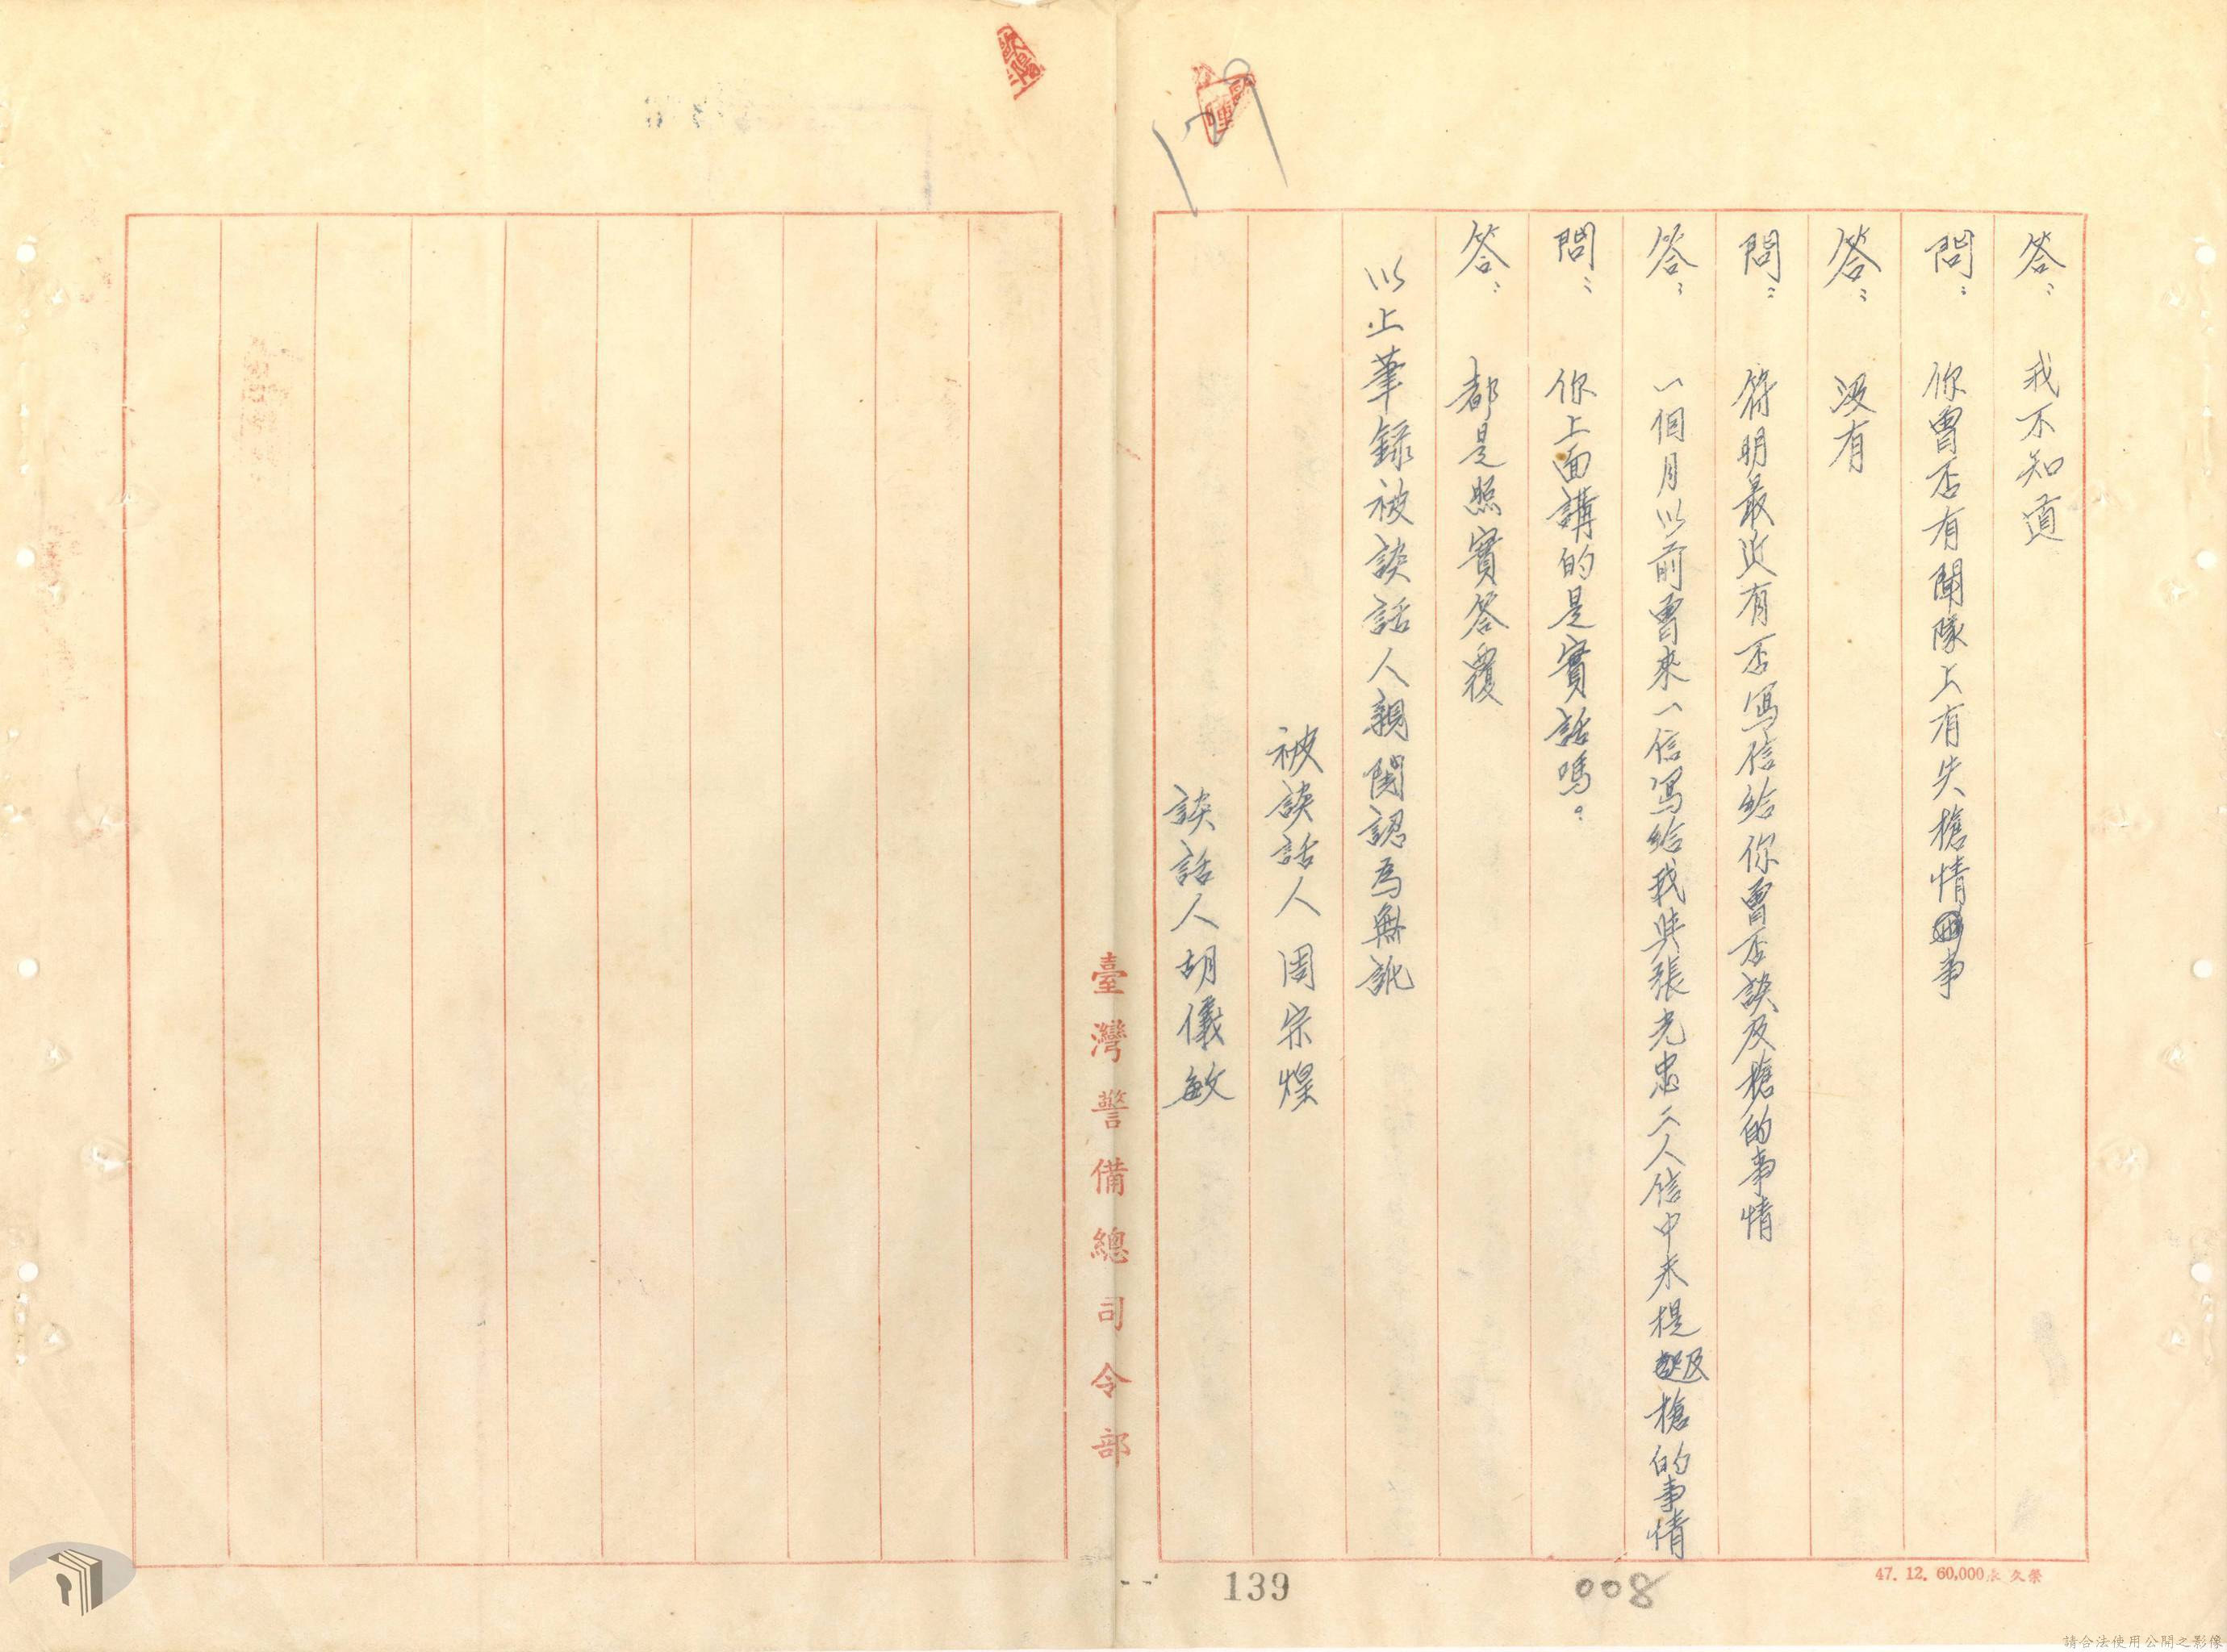 答： 我不知道
問： 你曾否有聞隊上有失槍情事
答： 沒有
問： 符明最近有否寫信給你曾否談及槍的事情
答： 一個月以前曾來一信寫給我與張光忠二人信中未提及槍的事情
問： 你上面講的是實話嗎。
答： 都是照實答覆
以上筆錄被談話人親閱認為無訛
被談話人 周宗煌
談話人 胡儀敏
臺灣警備總司令部
139
008
47. 12. 60,000 久榮
請合法使用公開之影像